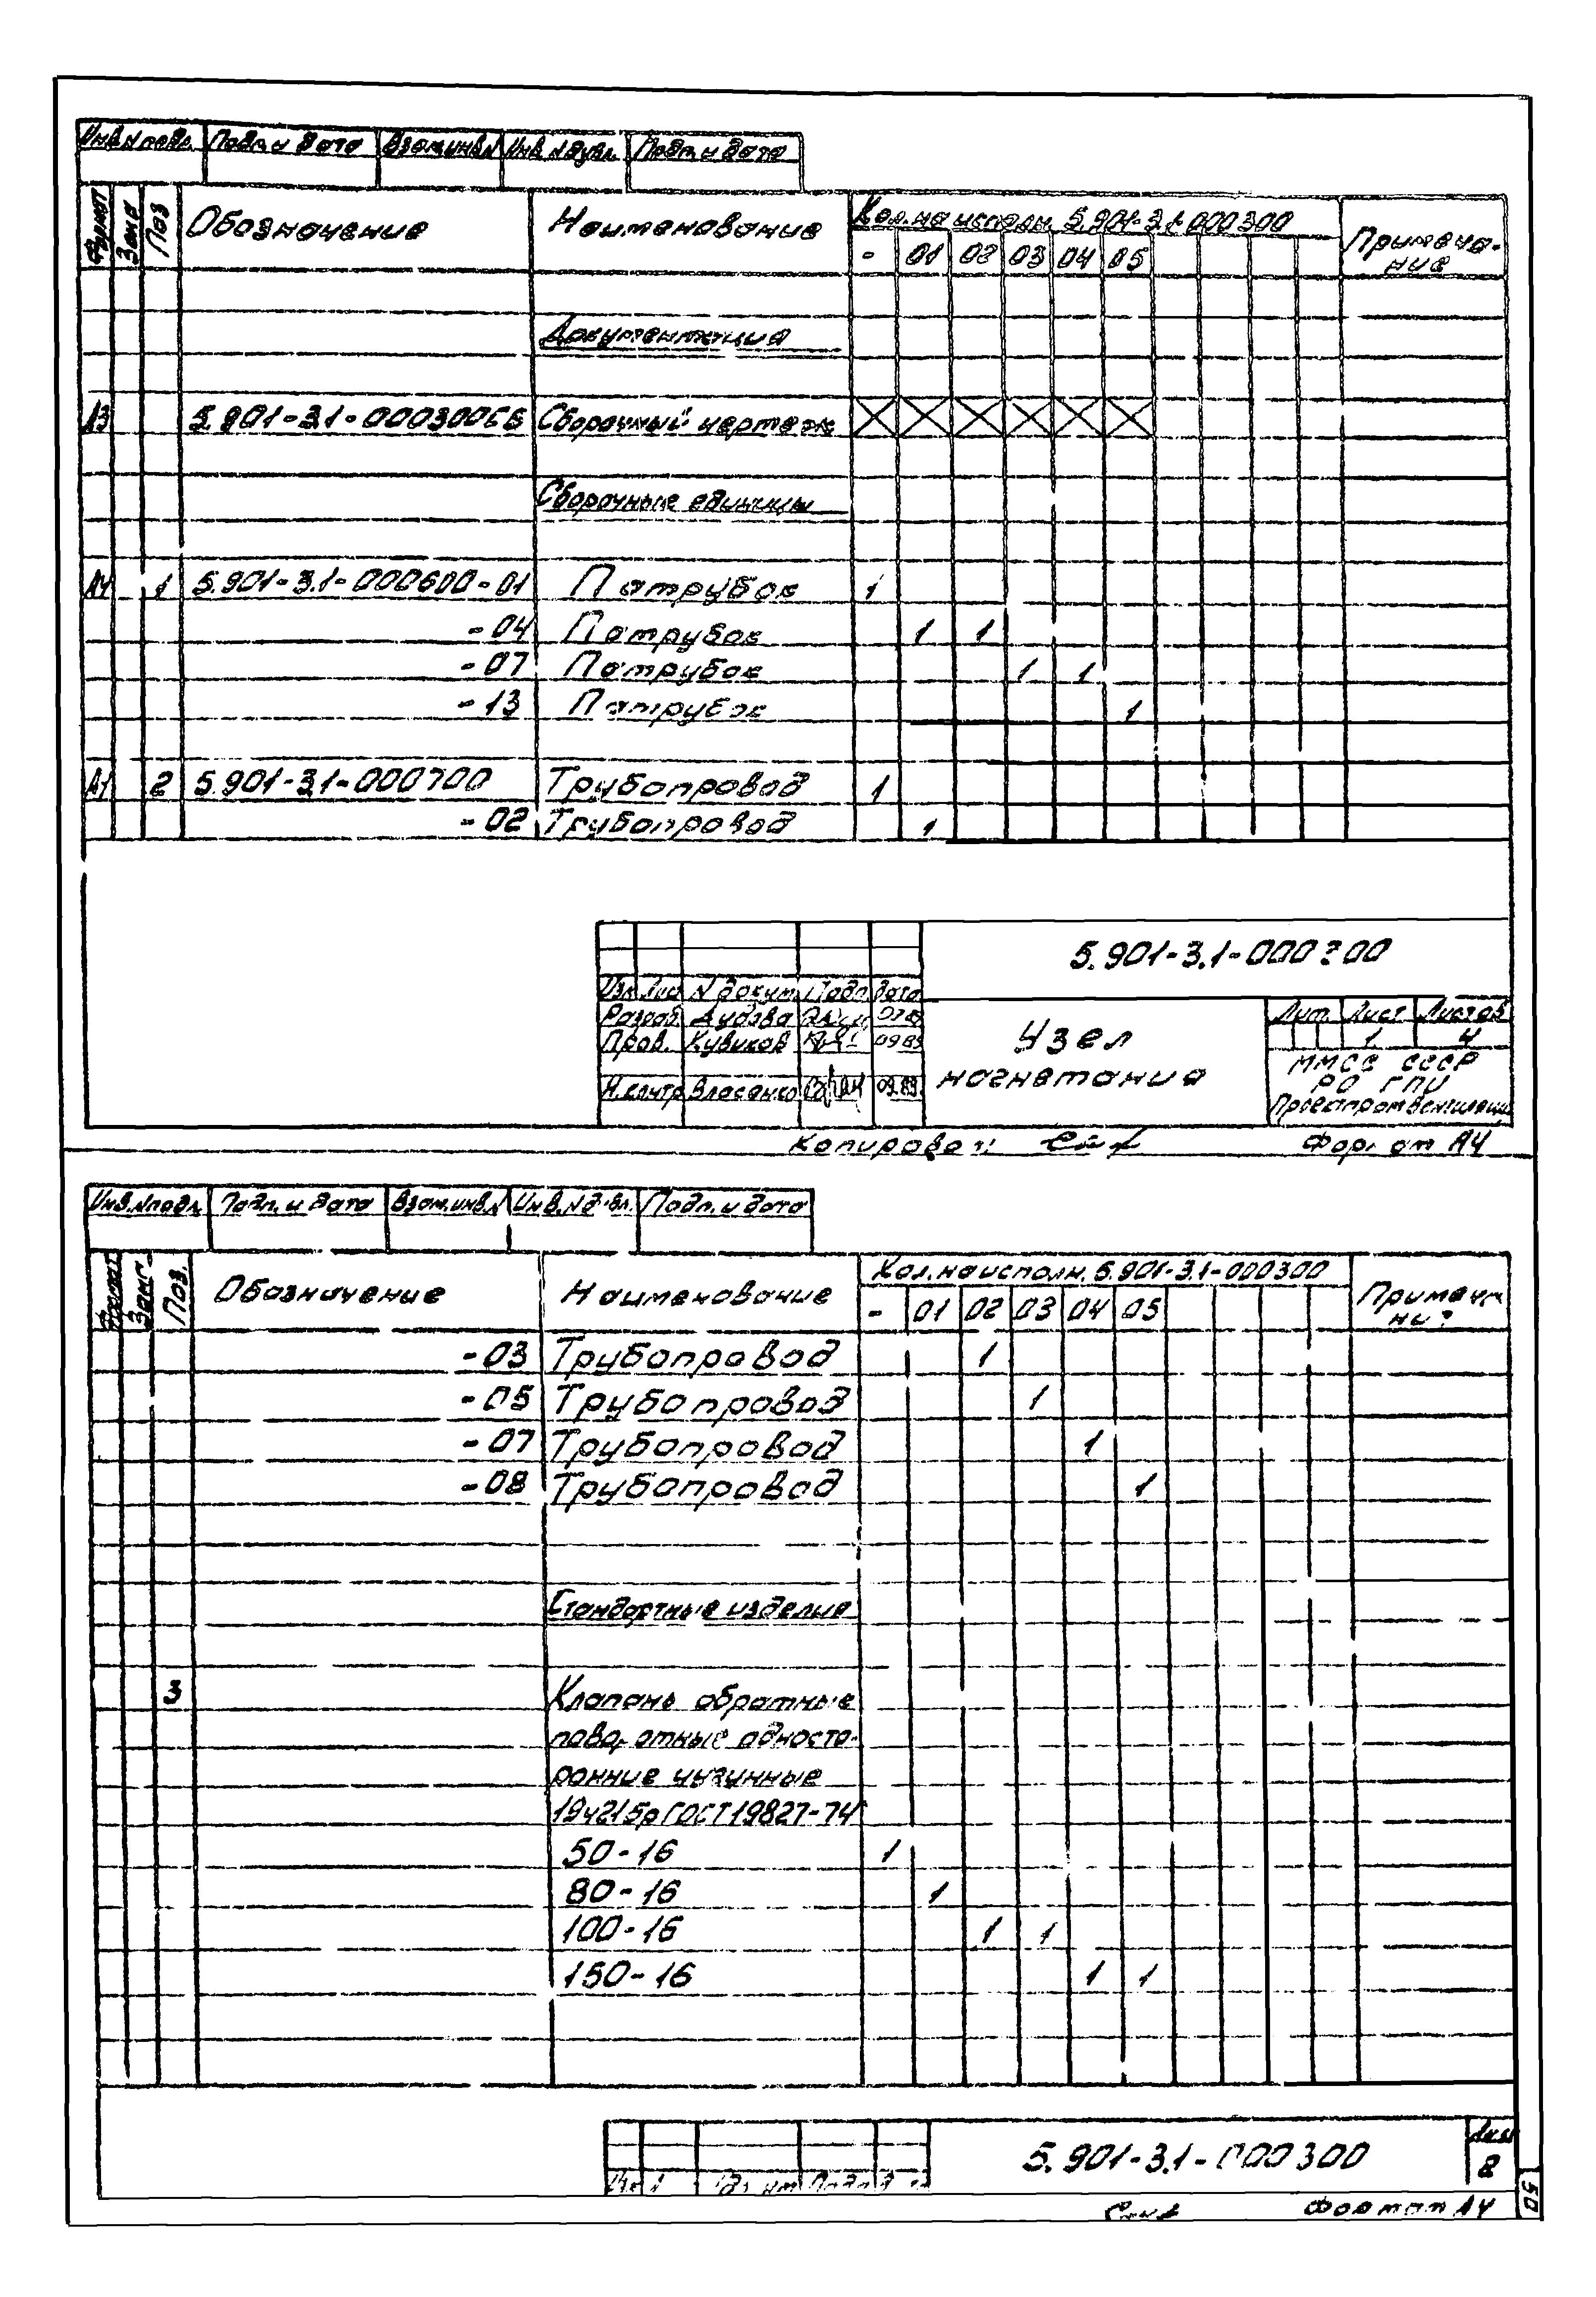 Инв.N подл. Подп. и дата Взам.инв.N Инв.N дубл. Подп. и дата
Формат Зона Поз Обозначение Наименование Кол. на исполн. 5.901-3.1-000300 Примеча-
ние
- 01 02 03 04 05
Документация
А3 5.901-3.1-000300СБ Сборочный чертеж
Сборочные единицы
А4 1 5.901-3.1-000600-01 Патрубок 1
-04 Патрубок 1 1
-07 Патрубок 1 1
-13 Патрубок 1
А4 2 5.901-3.1-000700 Трубопровод 1
-02 Трубопровод 1
5.901-3.1-000300
Изм. Лис N докум. Подп. Дата
Разраб. Дудова
Пров. Кувиков 09.89
Н.контр Власенко 09.89.
Узел
нагнетания
Лит. Лист Листов
1 4
ММСС СССР
РО ГПИ
Проектпромвентиляция
Копировал: Формат А4
Инв.N подл. Подп. и дата Взам.инв.N Инв.N дубл. Подп. и дата
Формат Зона Поз. Обозначение Наименование Кол. на исполн. 5.901-3.1-000300 Примеча
ни
- 01 02 03 04 05
-03 Трубопровод 1
-05 Трубопровод 1
-07 Трубопровод 1
-08 Трубопровод 1
Стандартные изделия
3 Клапаны обратные
поворотные односто-
ронние чугунные
19ч21бр ГОСТ 19827-74
50-16 1
80-16 1
100-16 1 1
150-16 1 1
5.901-3.1-000300 Лист
2
Формат А4
50